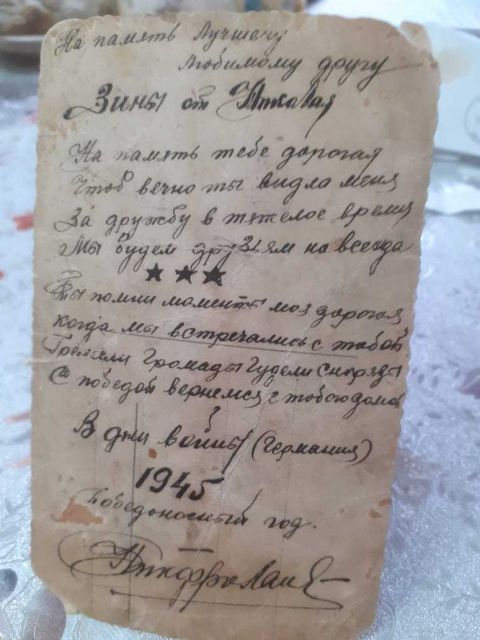 На память Лучшему
Любимому другу
Зины от Николая
На память тебе дорогая
Чтоб вечно ты видла меня
За дружбу в тяжелое время
Мы будем друзьям на всегда
★ ★ ★
Ты помни моменты моя дорогая
когда мы встречались с тобой
Гремели Громады Гудели Снаряды
С победой вернемся с тобою домой
?
В дни войны (Германия)
1945
Победоносный год.